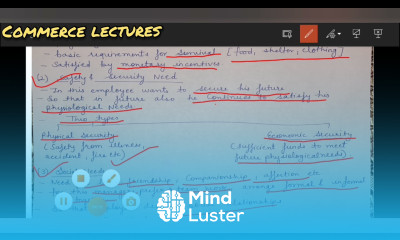 COMMERCE LECTURES
- basic requirements for survival [food, shelter, clothing]
- Satisfied by monetary incentives.
(2) Safety & Security Need
- In this employee wants to secure his future
- So that in future also he continues to satisfy his
Physiological Needs
Two types
Physical Security
(Safety from illness,
accident, fire etc)
Economic Security
(Sufficient funds to meet
future physiological needs)
Mind
Luster
(3) Social Needs
friendship, Companionship, affection etc
formal & informal